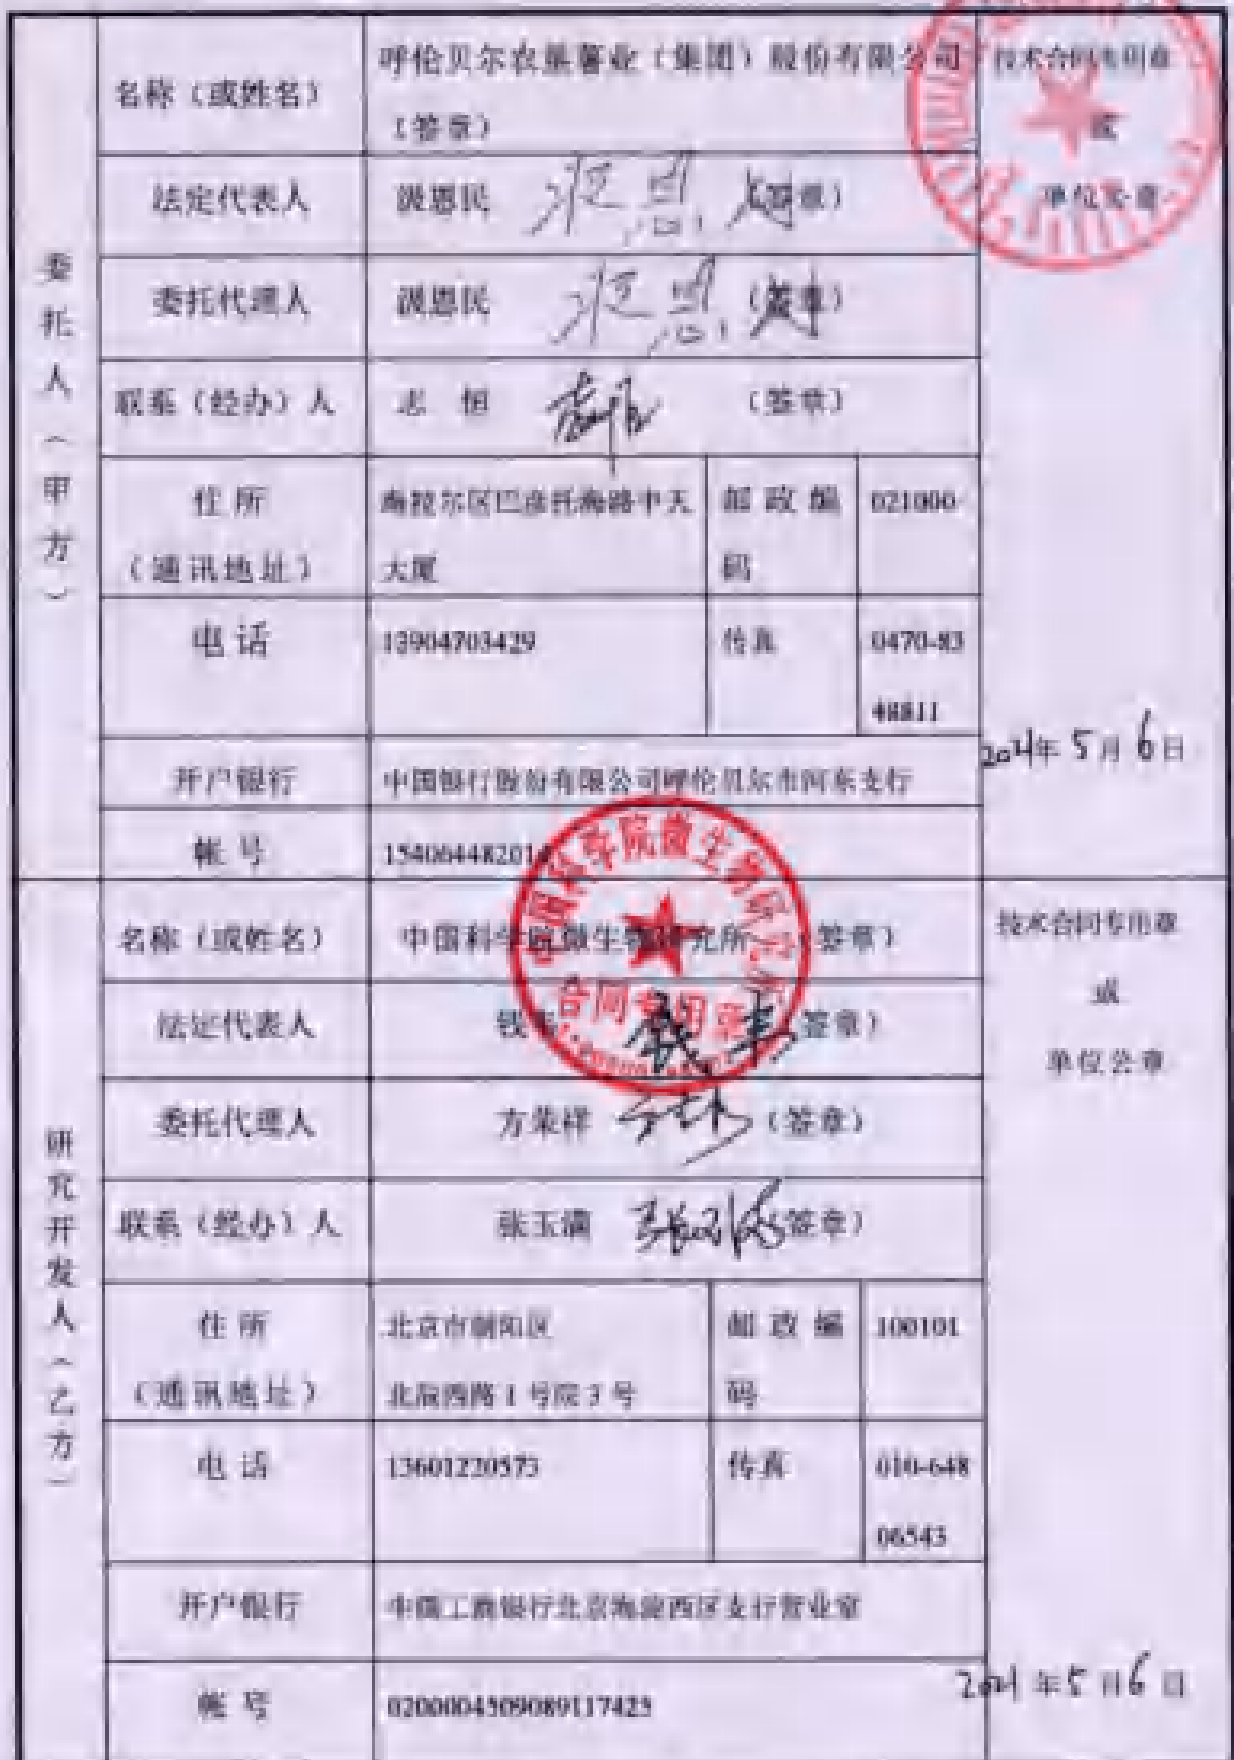 委托人（甲方）
名称（或姓名）
呼伦贝尔农垦薯业（集团）股份有限公司
（签章）
技术合同专用章
或
单位公章
法定代表人
汲恩民
（签章）
委托代理人
汲恩民
（签章）
联系（经办）人
志 恒
（签章）
住 所
（通讯地址）
海拉尔区巴彦托海路中天
大厦
邮 政 编
码
021000
电 话
13904703429
传真
0470-83
48811
2021年 5月 6日
开户银行
中国银行股份有限公司呼伦贝尔市河东支行
帐 号
研究开发人（乙方）
名称（或姓名）
中国科学院微生物研究所（签章）
中国科学院微生物研究所
合同专用章
技术合同专用章
或
单位公章
法定代表人
（签章）
委托代理人
方荣祥
（签章）
联系（经办）人
张玉满
（签章）
住 所
（通讯地址）
北京市朝阳区
北辰西路 1 号院 3 号
邮 政 编
码
100101
电 话
13601220573
传真
010-648
06543
开户银行
中国工商银行北京海淀西区支行营业室
帐 号
0200004509089117425
2021 年 5 月 6 日